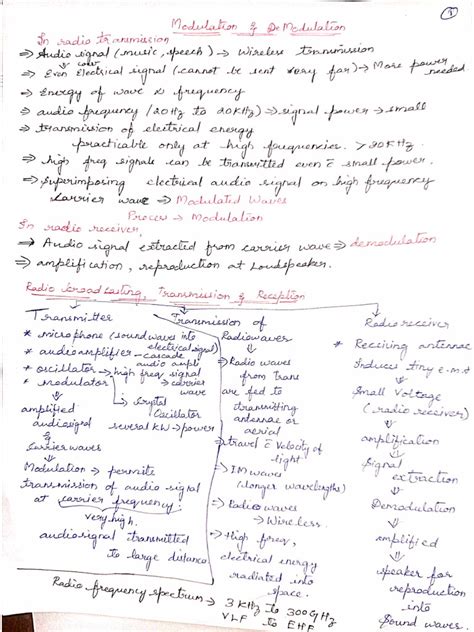 1
Modulation & DeModulation
In radio transmission
⇒ Audio signal (music, speech) → Wireless transmission
⇓ conver
⇒ Even Electrical signal (cannot be sent very far) → More power needed
⇒ Energy of wave ∝ frequency
⇒ audio frequency (20Hz to 20KHz) → signal power → small
⇒ transmission of electrical energy
practicable only at high frequencies. > 20KHz.
⇒ high freq signals can be transmitted even c̄ small power.
⇒ Superimposing electrical audio signal on high frequency
Carrier wave ⇒ Modulated Waves
Process → Modulation
In radio receiver,
⇒ Audio signal extracted from carrier wave ⇒ demodulation
⇒ amplification, reproduction at Loudspeaker.
Radio broadcasting, Transmission & Reception
Transmitter
* microphone (sound waves into electrical signal)
* audio amplifier → cascade audio ampl
* oscillator → high freq signal
* modulator → carrier wave
⇓
Crystal
Oscillator
several KW → power
amplified
audio signal
&
Carrier waves
⇓
Modulation → permits
transmission of audio signal
at carrier frequency.
very high.
audio signal transmitted
to large distance
Transmission of
Radiowaves
⇓
→ Radio waves
from trans
are fed to
transmitting
antennae or
aerial
→ travel c̄ Velocity of
light
→ EM waves
(longer wavelengths)
→ Radio waves
→ Wireless.
→ High freq,
electrical energy
radiated into
space.
Radio receiver
* Receiving antennae
Induces tiny e.m.f
⇓
Small Voltage
(radio receiver)
⇓
amplification
⇓
Signal
extraction
⇓
Demodulation
⇓
amplified
⇓
speaker for
reproduction
into
Sound waves.
Radio frequency spectrum → 3 KHz to 300GHz
VLF to EHF